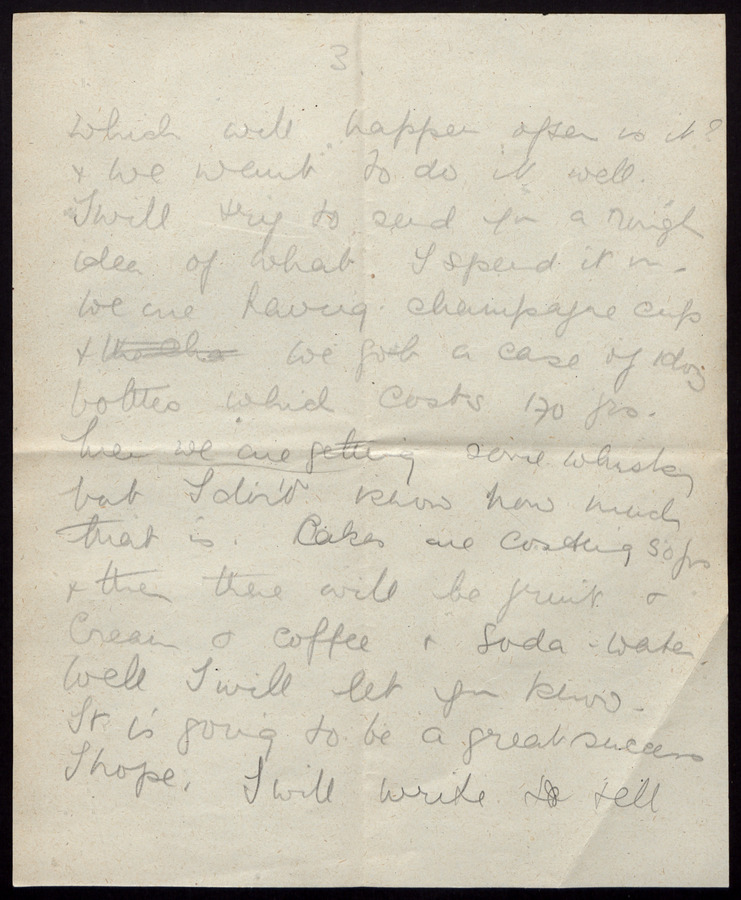 3
which will happen often is it?
& we want to do it well.
I will try to send you a rough
idea of what I spend it in.
We are having champagne cup
& the cha we got a case of 1 doz
bottles which costs 170 frs.
Then we are getting some whisky
but I don't know how much
that is. Cakes are costing 50 frs
& then there will be fruit &
Cream & coffee & Soda-water.
Well I will let you know.
It is going to be a great success
I hope. I will write & tell